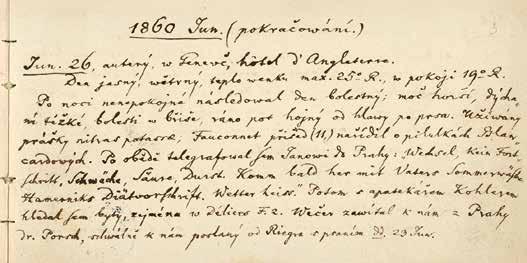 1860 Jun. (pokračowání.)
Jun. 26, auterý, w Genevě, hôtel d'Angleterre.
Den jasný, wětrný, teplo wenku max. 25° R., w pokoji 19° R.
Po noci nepokojné následowal den bolestný: moč horší, dýchá-
ní těžké, bolesti w břiše, ráno pot hojný od hlawy po prsa. Užíwány
prášky nitras potassae, Fauconnet přišed (11) nařídil o pilulkách Blan-
cardowých. Po obědě telegrafowal sem Janowi do Prahy: Wechsel, kein Fort-
schritt, Schwäche, Säure, Durst. Komm bald her mit Vaters Sommerwäsche
Hamerniks Diätvorschrift. Wetter heiss." Potom s apatekářem Kohlerem
hledal sem byty, zejména w Délices F. 2. Wečer zawítal k nám z Prahy
dr. Porsch, schwálně k nám poslaný od Riegra s psaním dd. 23 Jun.